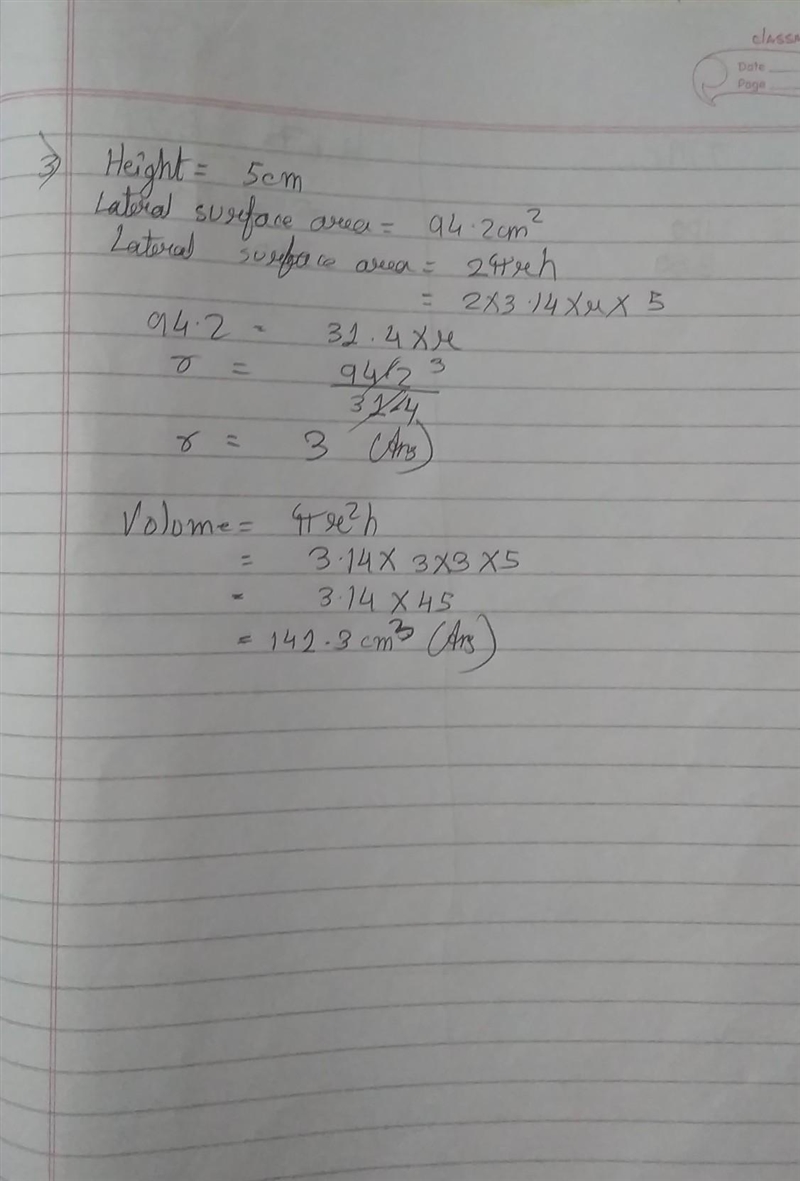 classm
Date
Page
3) Height = 5cm
Lateral surface area = 94.2cm²
Lateral surface area = 2πrh
= 2×3.14×r×5
94.2 = 31.4×r
r = 94.2 3
31.4
r = 3 (Ans)
Volume = πr²h
= 3.14× 3×3×5
= 3.14 ×45
= 142.3cm³ (Ans)